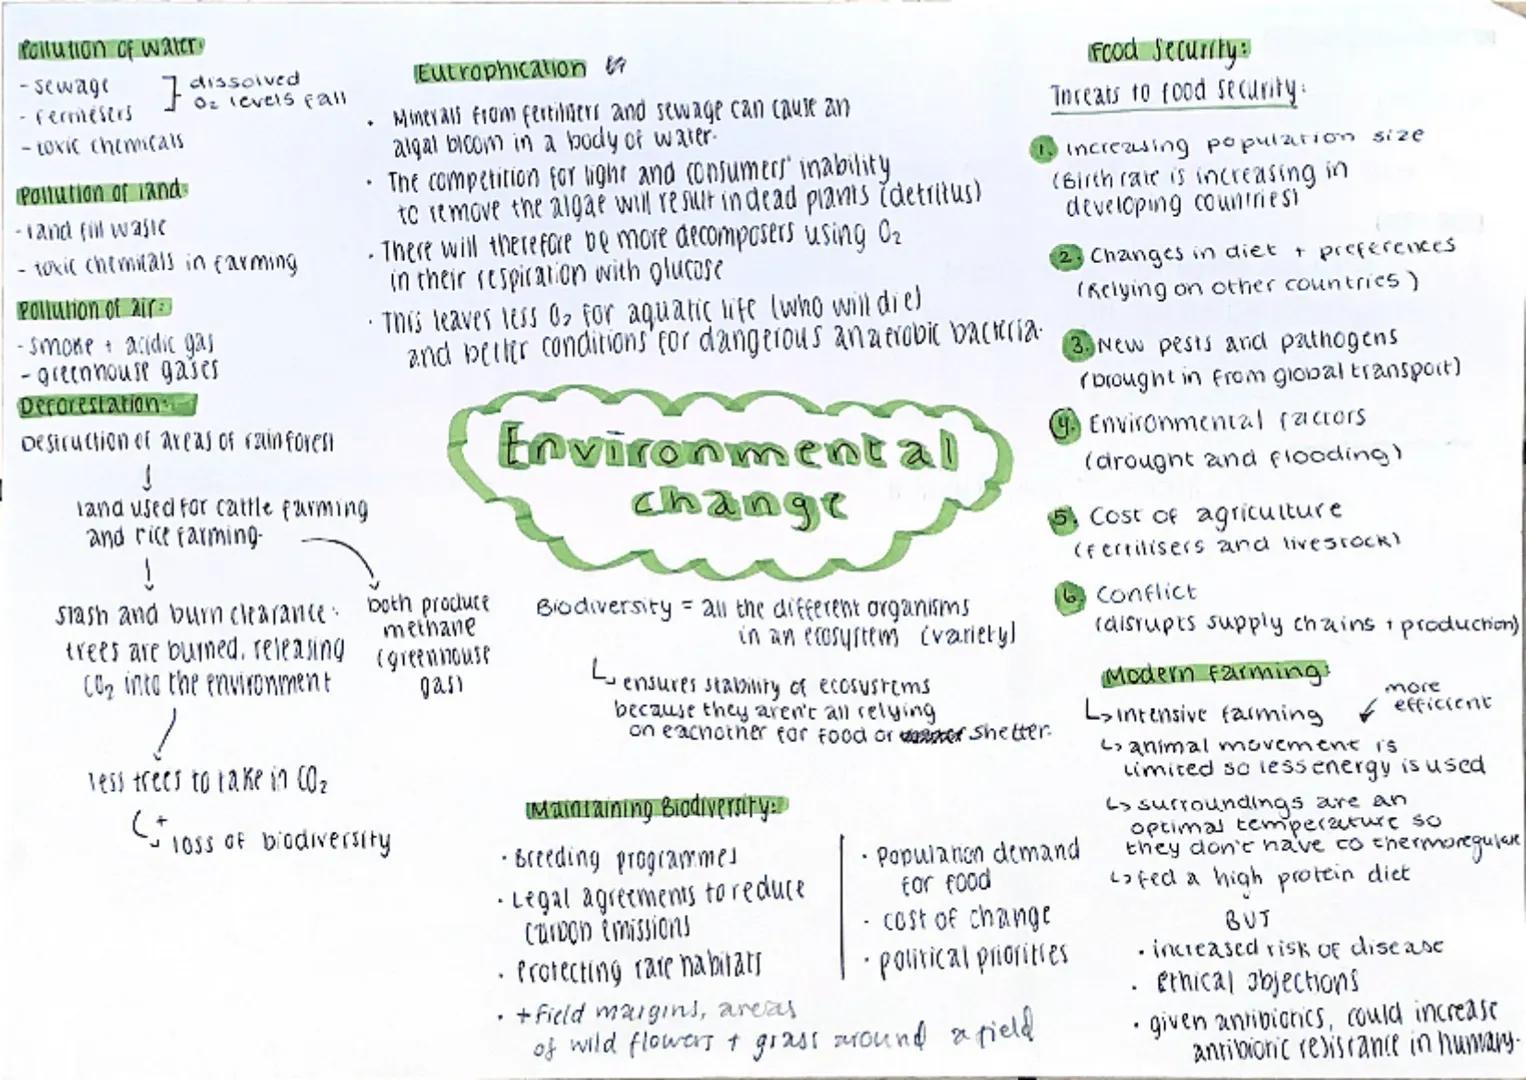 Pollution of water:
- sewage
- fertilisers
- toxic chemicals
dissolved
O₂ levels fall
Pollution of land:
- land fill waste
- toxic chemicals in farming
Pollution of air:
- smoke + acidic gas
- greenhouse gases
Deforestation:
Destruction of areas of rainforest
land used for cattle farming
and rice farming.
both produce
methane
(greenhouse
gas)
slash and burn clearance:
trees are burned, releasing
CO₂ into the environment
less trees to take in CO₂
+
loss of biodiversity
Eutrophication
• Minerals from fertilisers and sewage can cause an
algal bloom in a body of water.
• The competition for light and consumers' inability
to remove the algae will result in dead plants (detritus)
• There will therefore be more decomposers using O₂
in their respiration with glucose
• This leaves less O₂ for aquatic life (who will die)
and better conditions for dangerous anaerobic bacteria.
Environmental
change
Biodiversity = all the different organisms
in an ecosystem (variety)
ensures stability of ecosystems
because they aren't all relying
on eachother for food or shelter.
Maintaining Biodiversity:
• Breeding programmes
• Legal agreements to reduce
carbon emissions
• Protecting rare habitats
• + field margins, areas
of wild flowers + grass around a field
• Population demand
for food
• cost of change
• political priorities
Food Security:
Threats to food security:
1. Increasing population size
(Birth rate is increasing in
developing countries)
2. Changes in diet + preferences
(Relying on other countries)
3. New pests and pathogens
(brought in from global transport)
4. Environmental factors
(drought and flooding)
5. Cost of agriculture
(fertilisers and livestock)
6. Conflict
(disrupts supply chains + production)
Modern farming:
↳ intensive farming
more
efficient
↳ animal movement is
limited so less energy is used
↳ surroundings are an
optimal temperature so
they don't have to thermoregulate
↳ fed a high protein diet
BUT
• increased risk of disease
• ethical objections
• given antibiotics, could increase
antibiotic resistance in humans.